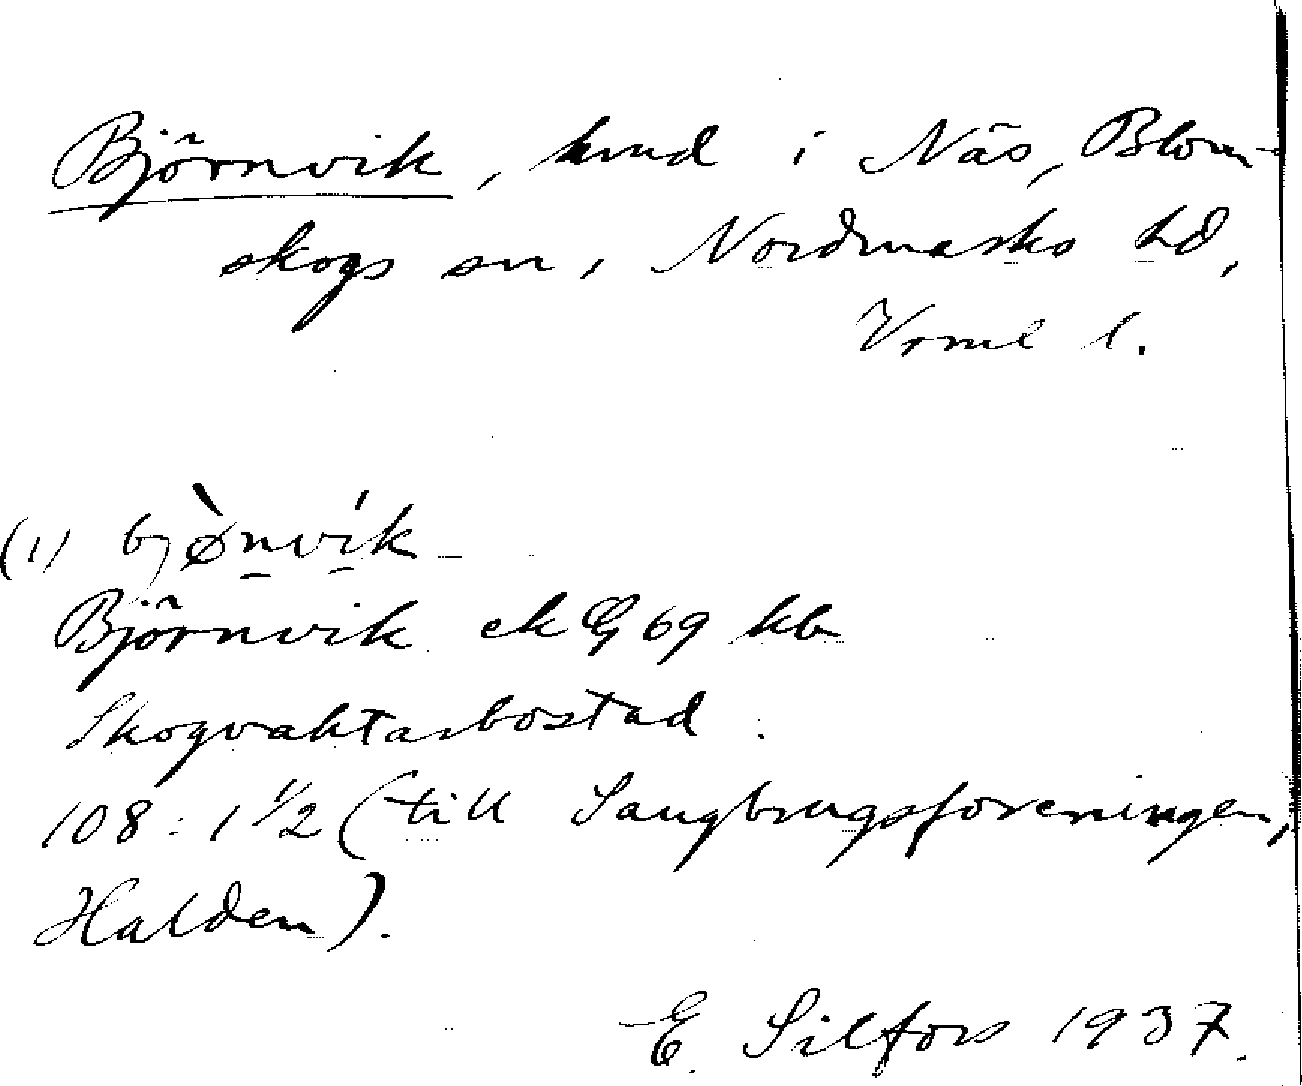 Björnvik, hmd i Näs, Blom-
skogs sn, Nordmarks hd,
Vrml l.
(1) bjònvík
Björnvik ek G 69 kb
Skogvaktarbostad.
108: 1 1/2 (till Saugbrugsforeningen,
Halden).
E. Silfors 1937.